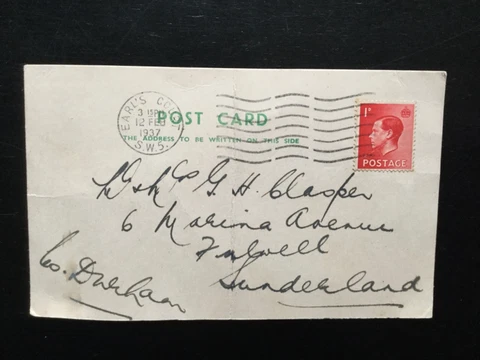 EARL'S COURT
3 15PM
12 FEB
1937
S.W.5.
POST CARD
THE ADDRESS TO BE WRITTEN ON THIS SIDE
1D
POSTAGE
Mr & Mrs G. H. Clasper
6 Marina Avenue
Fulwell
Sunderland
Co. Durham